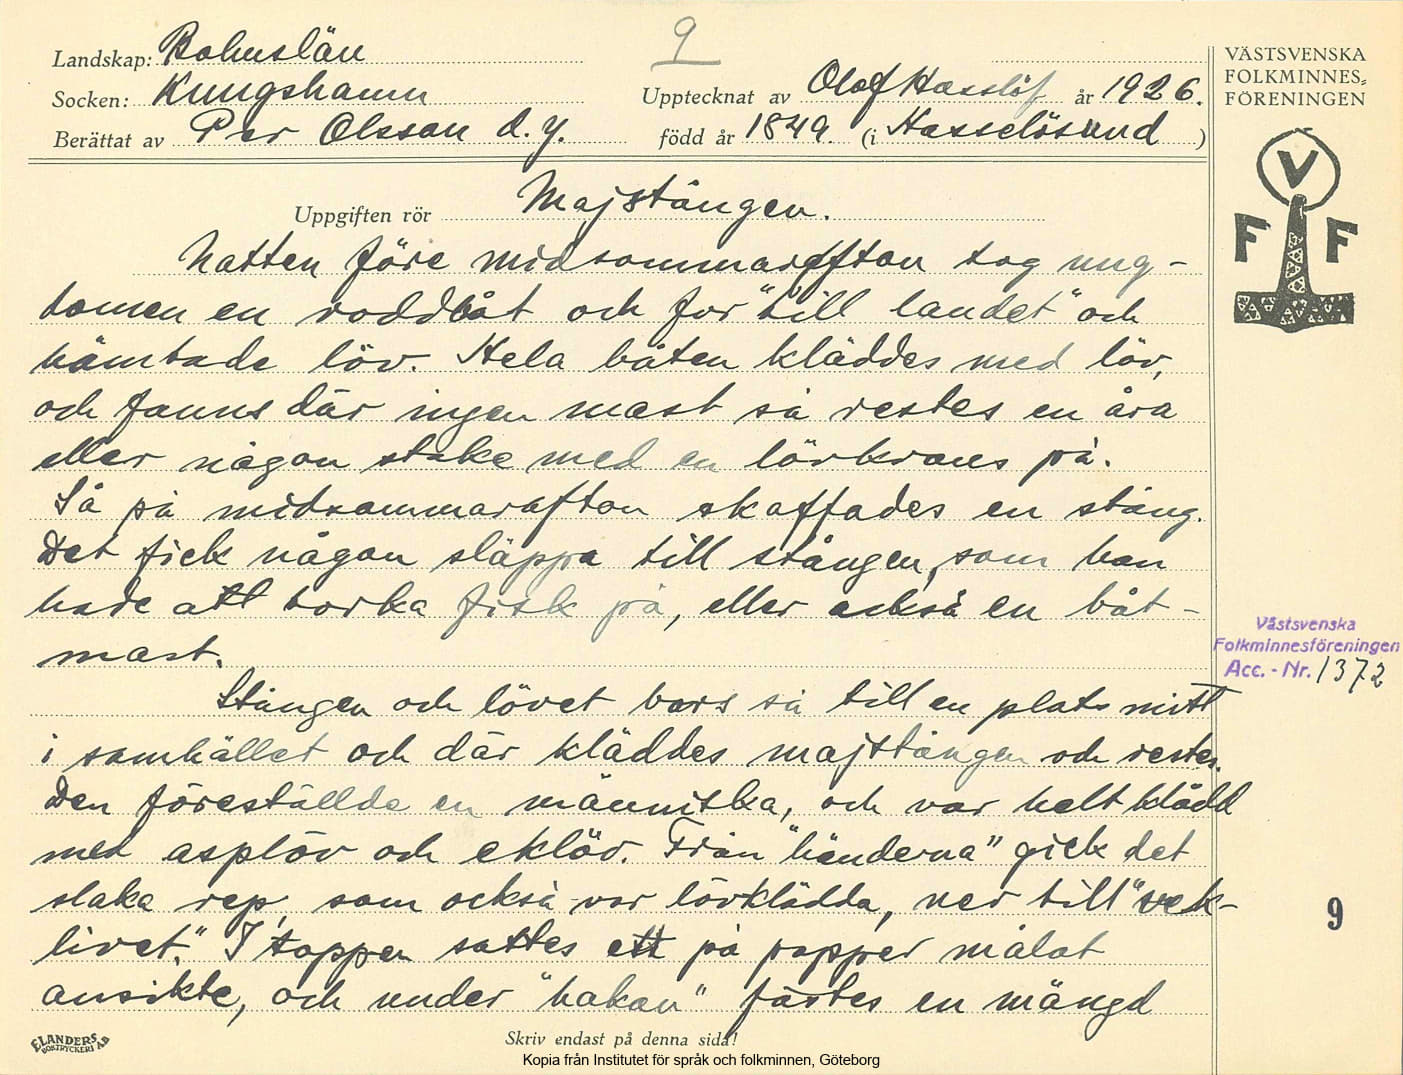 9
Landskap: Bohuslän
Socken: Kungshamn
Upptecknat av Olof Hasslöf år 1926.
Berättat av Per Olsson d.y. född år 1849. (i Hasselösund)
Uppgiften rör Majstången.
VÄSTSVENSKA
FOLKMINNES-
FÖRENINGEN
V
F F
Natten före midsommarafton tog ung-
domen en roddbåt och for "till landet" och
hämtade löv. Hela båten kläddes med löv,
och fanns där ingen mast så restes en åra
eller någon stake med en lövkrans på.
Så på midsommarafton skaffades en stång.
Det fick någon släppa till stången, som han
hade att torka fisk på, eller också en båt-
mast.
Stången och lövet bars så till en plats mitt
i samhället och där kläddes majstången och restes.
Den föreställde en människa, och var helt klädd
med asplöv och eklöv. Från "händerna" gick det
slaka rep, som också var lövklädda, ner till "vek-
livet." I toppen sattes ett på papper målat
ansikte, och under "hakan" fästes en mängd
Västsvenska
Folkminnesföreningen
Acc. - Nr. 1372
9
ELANDERS
BOKTRYCKERI AB
Skriv endast på denna sida!
Kopia från Institutet för språk och folkminnen, Göteborg